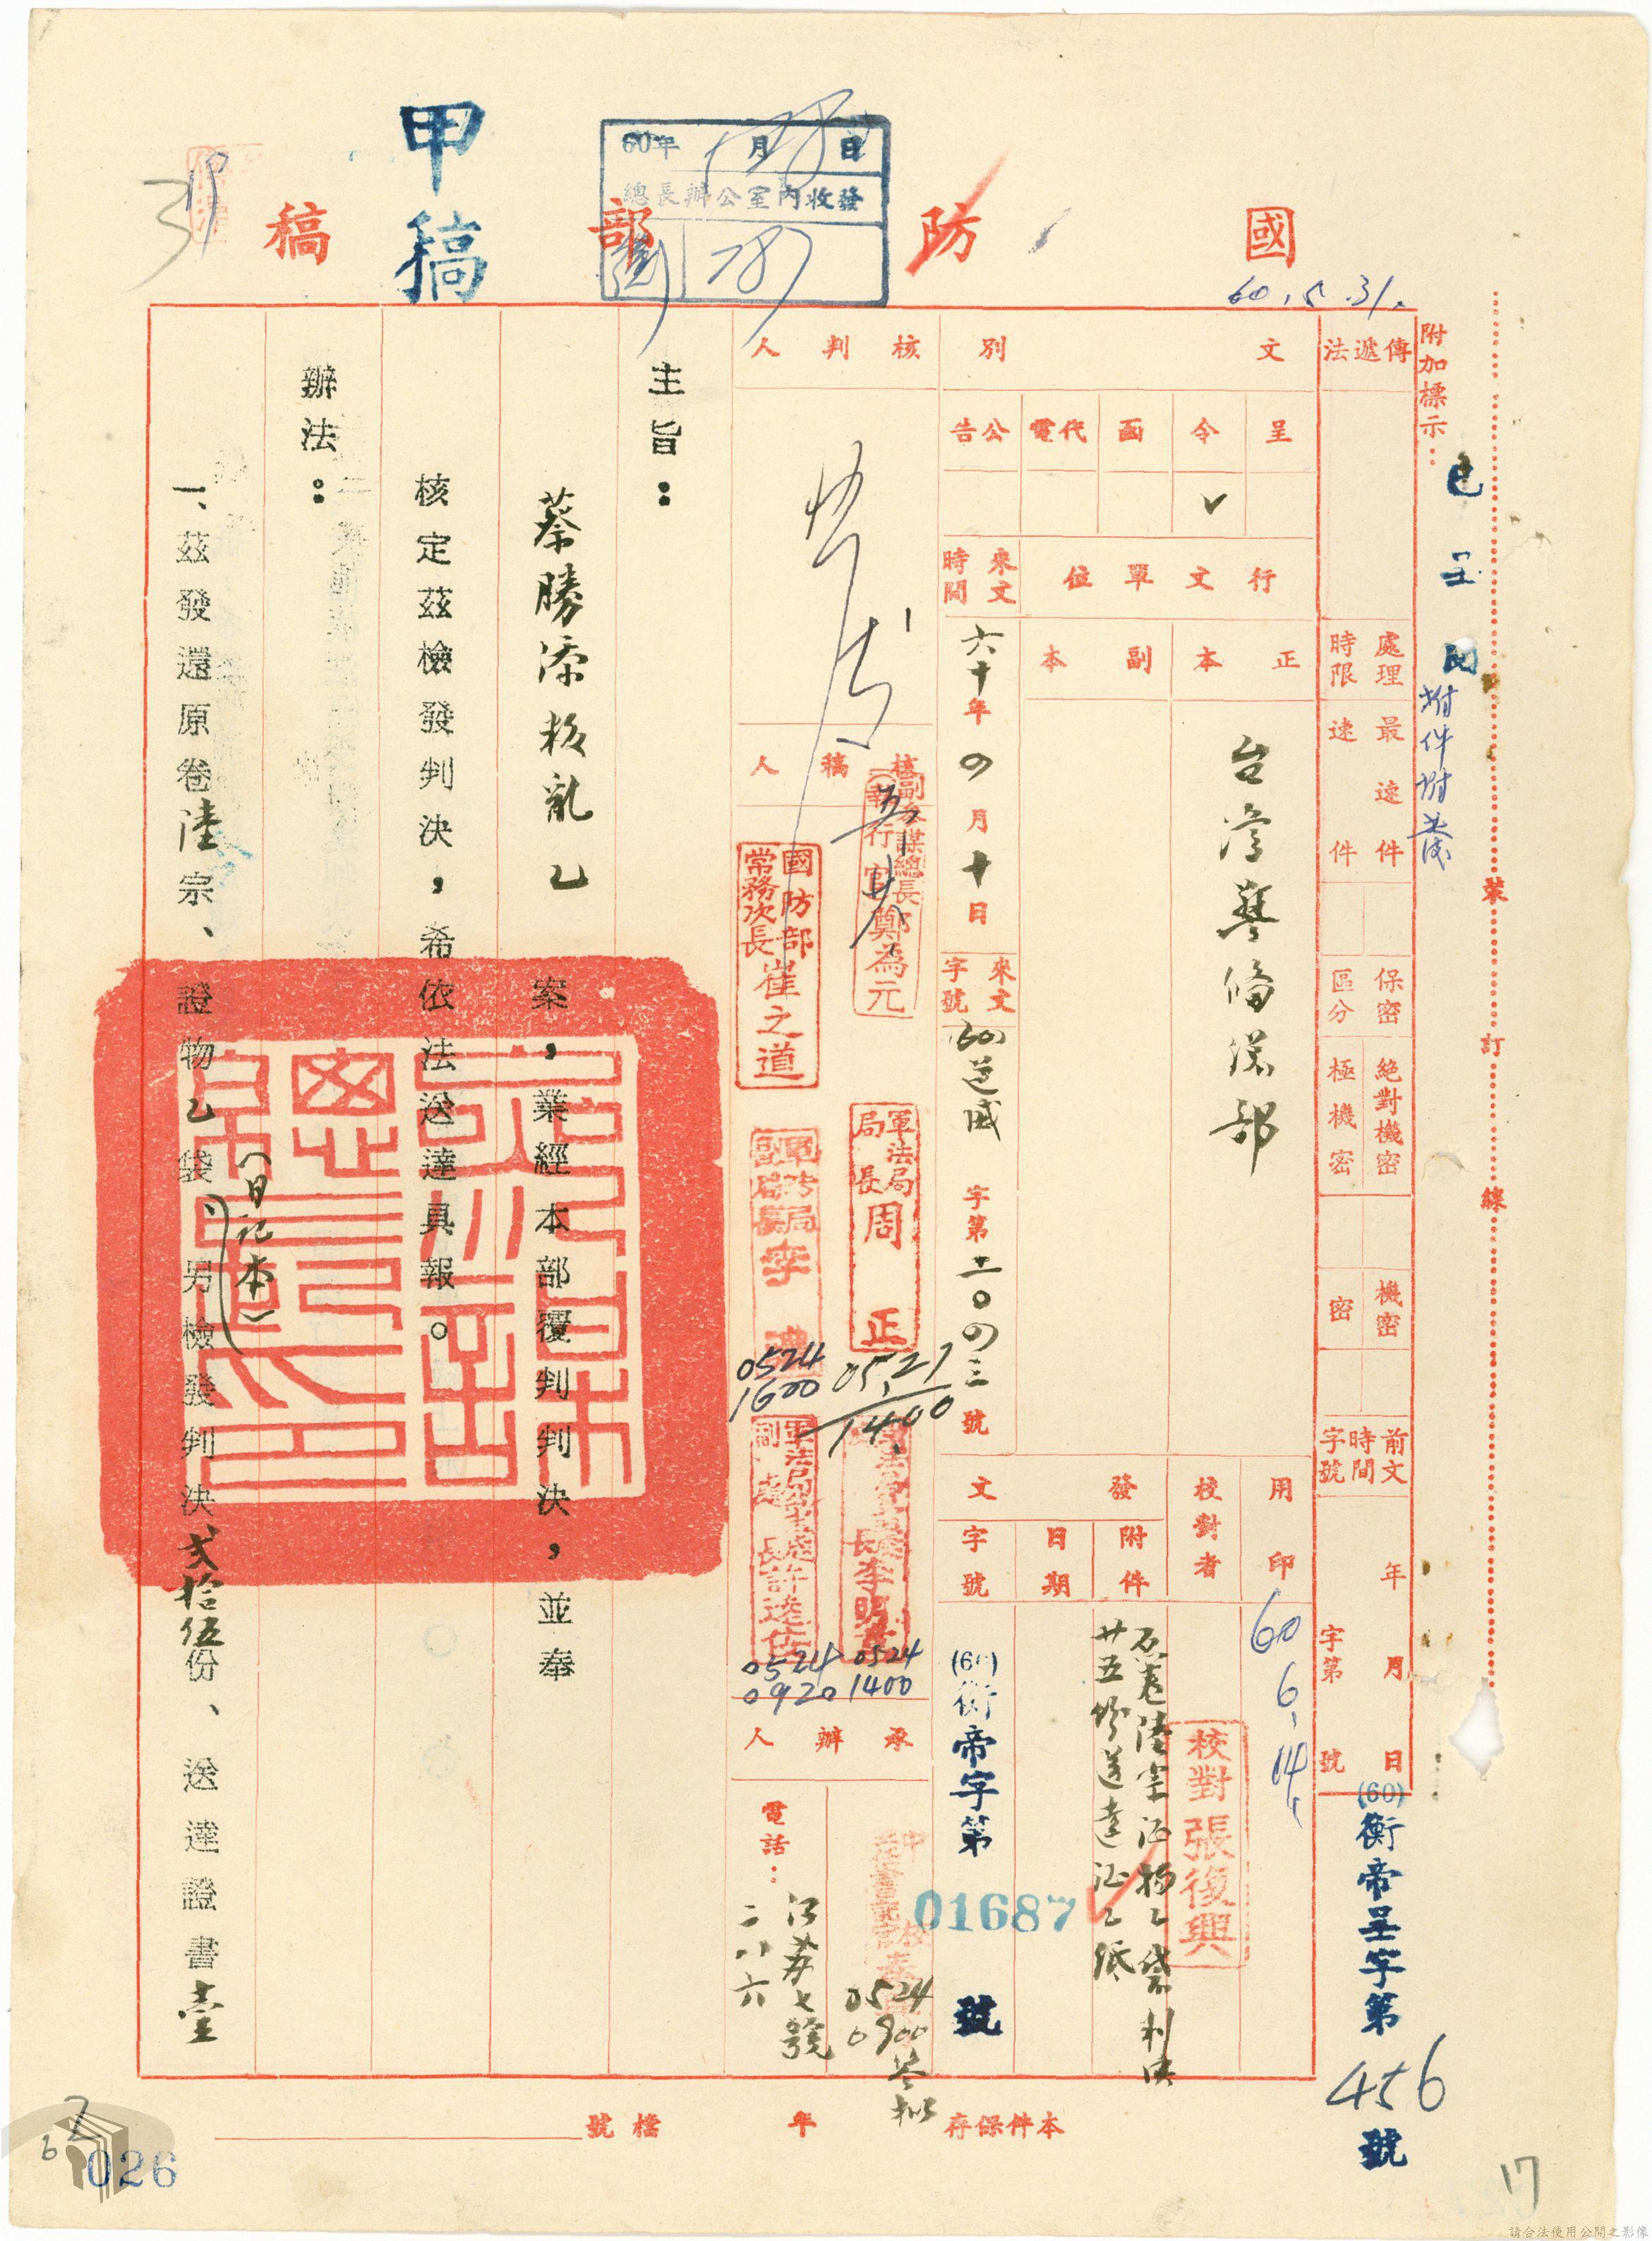 國防部稿
甲稿
60年 月 日
總長辦公室內收發
60.5.31.
附加標示：
已呈閱
附件附卷
裝訂線
傳遞法
處理時限
最速件
速件
保密區分
絕對機密
極機密
機密
密
前文時間字號
年 月 日
字第 號
(60)衡帝呈字第456號
文別
呈
令 ✓
函
代電
公告
行文單位
正本
副本
台灣警備總部
來文時間
六十年四月十日
來文字號
(60)道威字第二〇四三號
用印
60.6.14.
校對者
校對張復興
發文
附件
原卷陸宗證物乙袋判決
廿五份送達證乙紙
日期
字號
(60)衡帝字第01687號
核判人
核稿人
副參謀總長
(執行官)鄭為元
國防部
常務次長崔之道
軍法局
局長周正
05.27
1400
0524
1600
0524
1400
0524
0920
承辦人
0524
0900
電話：
二八六
主旨：
蔡勝添叛亂乙案，業經本部覆判判決，並奉
核定茲檢發判決，希依法送達具報。
辦法：
一、茲發還原卷陸宗、證物乙袋(日記本)、另檢發判決貳拾伍份、送達證書壹
本件保存 年
檔號
026
17
請合法使用公開之影像